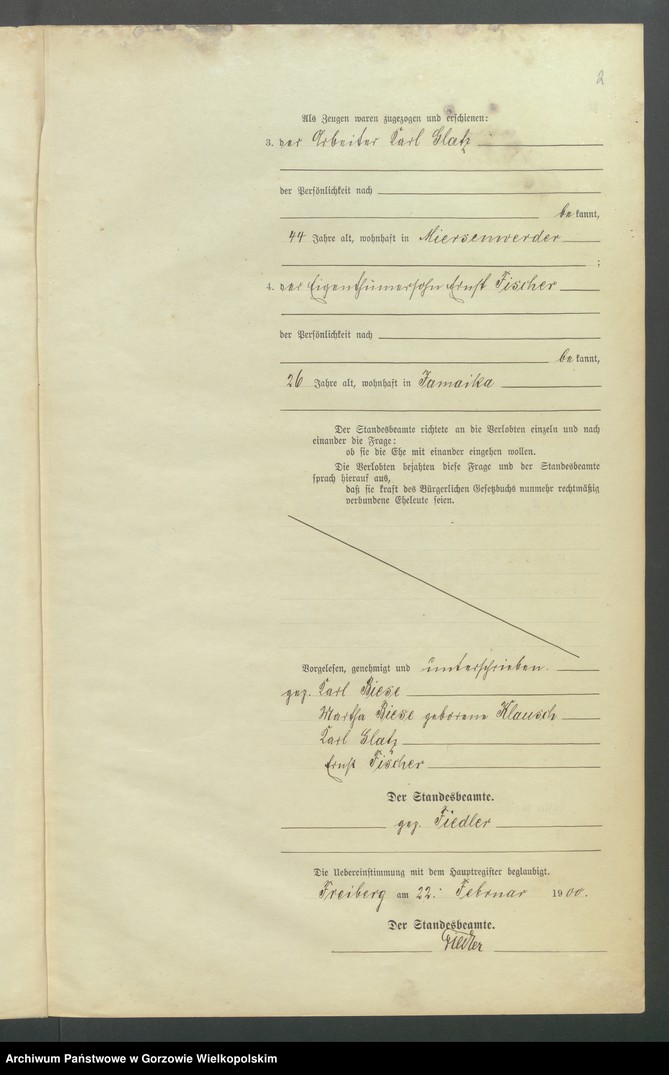 2
Als Zeugen waren zugezogen und erschienen:
3. der Arbeiter Karl Glatz
der Persönlichkeit nach
be kannt,
44 Jahre alt, wohnhaft in Miersenwerder
;
4. der Eigenthümersohn Ernst Fischer
der Persönlichkeit nach
be kannt,
26 Jahre alt, wohnhaft in Jamaika
Der Standesbeamte richtete an die Verlobten einzeln und nach
einander die Frage:
ob sie die Ehe mit einander eingehen wollen.
Die Verlobten bejahten diese Frage und der Standesbeamte
sprach hierauf aus,
daß sie kraft des Bürgerlichen Gesetzbuchs nunmehr rechtmäßig
verbundene Eheleute seien.
Vorgelesen, genehmigt und unterschrieben.
gez. Karl Biese
Martha Biese geborene Klausch
Karl Glatz
Ernst Fischer
Der Standesbeamte.
gez. Fiedler
Die Uebereinstimmung mit dem Hauptregister beglaubigt.
Freiberg am 22. Februar 1900.
Der Standesbeamte.
Fiedler
Archiwum Państwowe w Gorzowie Wielkopolskim